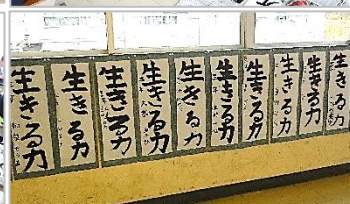 生きる力
生きる力
生きる力
生きる力
生きる力
生きる力
生きる力
生きる力
生きる力
生きる力